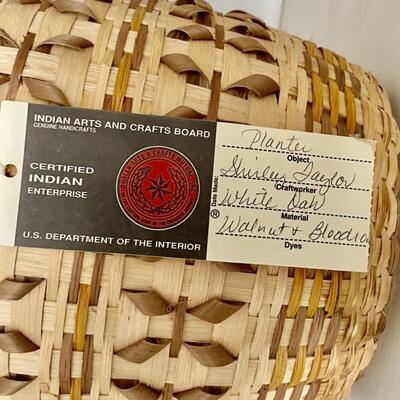 INDIAN ARTS AND CRAFTS BOARD
GENUINE HANDICRAFTS
CERTIFIED
INDIAN
ENTERPRISE
U.S. DEPARTMENT OF THE INTERIOR
Planter
Object
Shirley Taylor
Craftworker
Date Made
White Oak
Material
®
Walnut & Bloodroot
Dyes